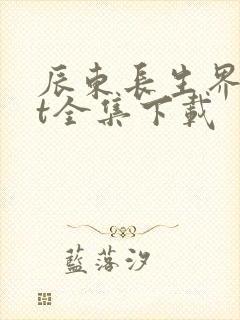 辰東長生界
t全集下載
藍落汐